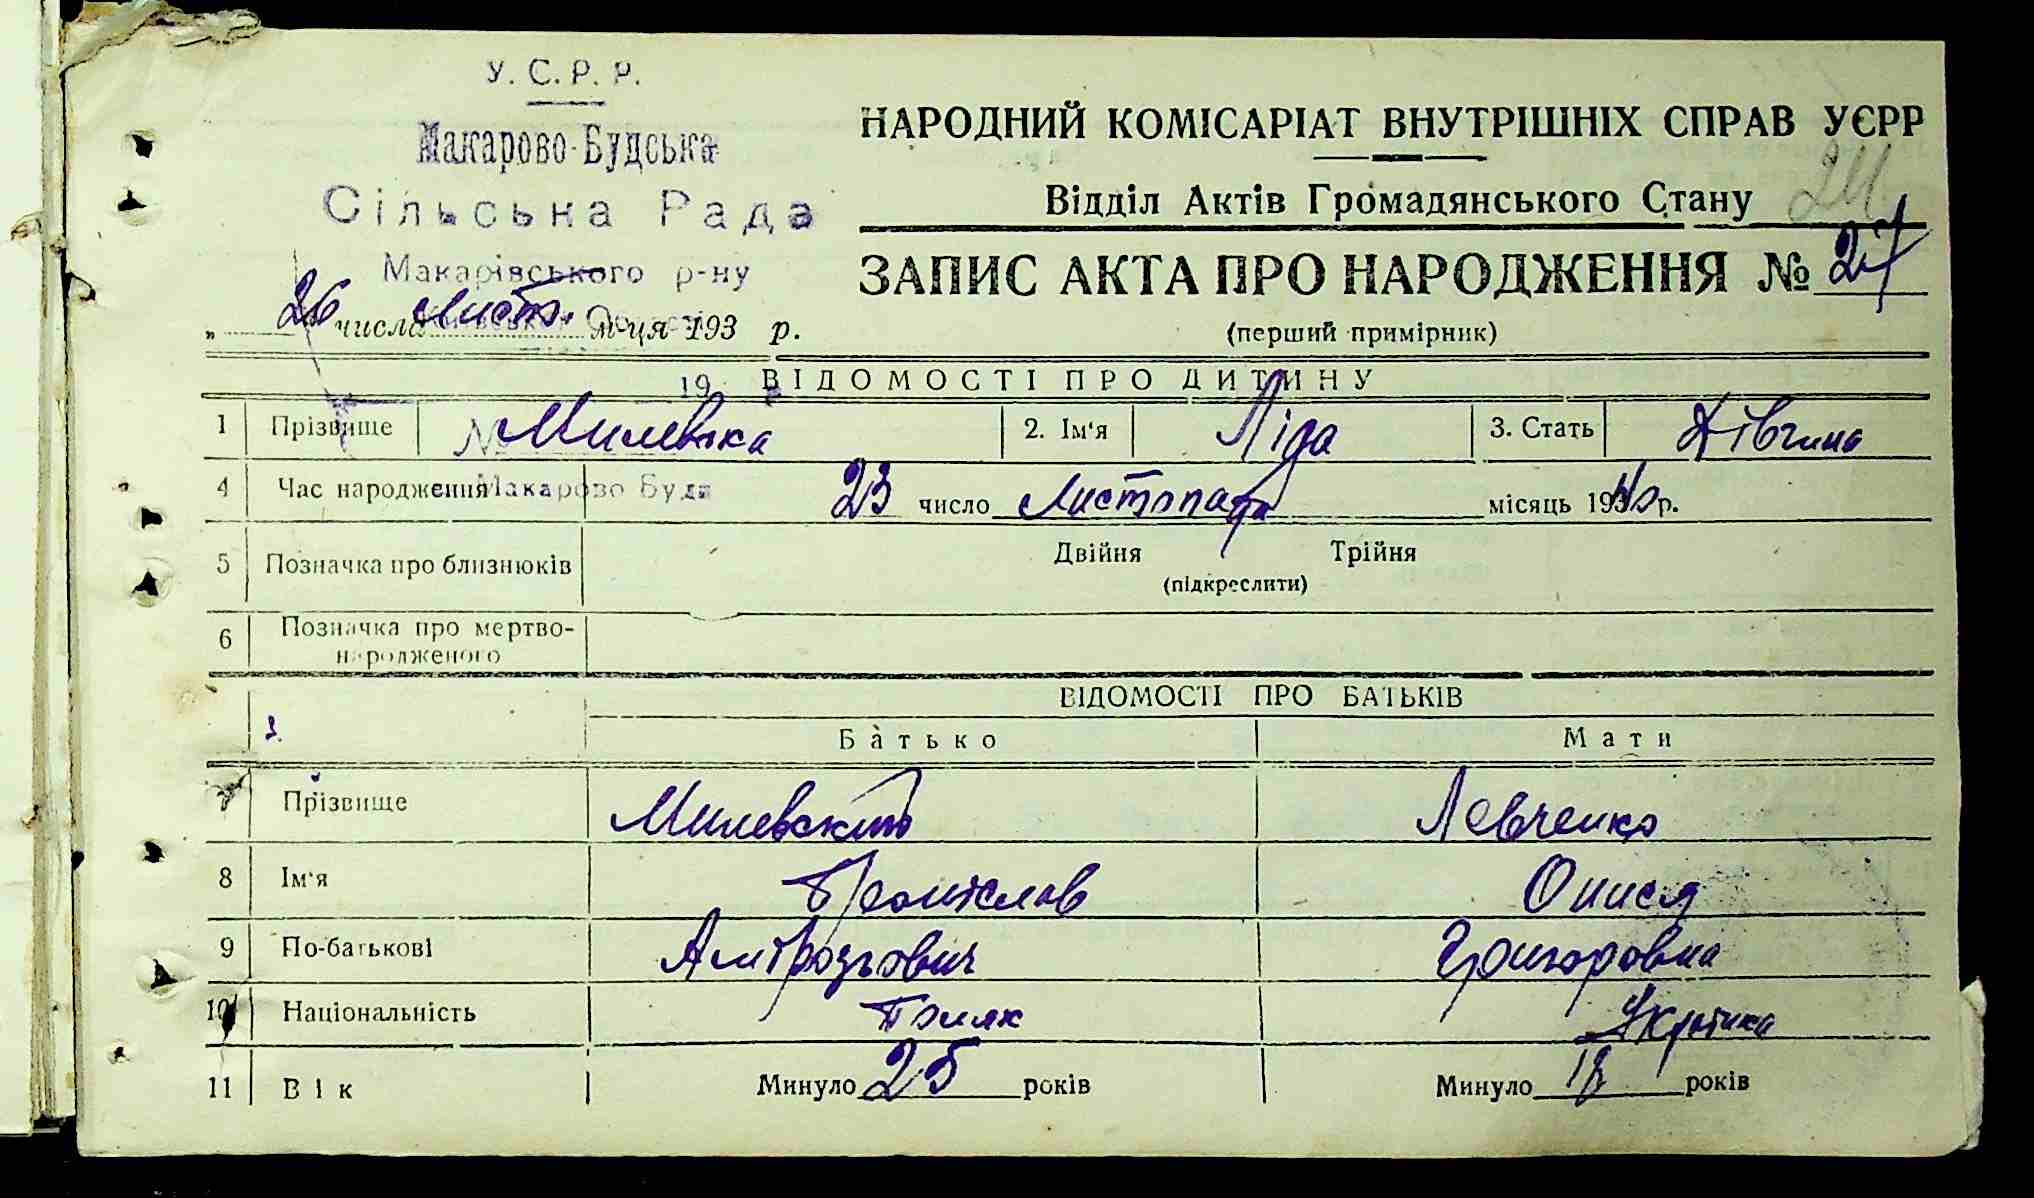 У. С. Р. Р.
Макарово-Будська
Сільська Рада
Макарівського р-ну
НАРОДНИЙ КОМІСАРІАТ ВНУТРІШНІХ СПРАВ УСРР
Відділ Актів Громадянського Стану 24
ЗАПИС АКТА ПРО НАРОДЖЕННЯ № 27
(перший примірник)
„ 26 числа Листп. м-ця 193 р.
19
ВІДОМОСТІ ПРО ДИТИНУ
1 Прізвище Милевська 2. Ім'я Ліда 3. Стать Дівчина
Макарово Буда
4 Час народження 23 число Листопада місяць 1940 р.
5 Позначка про близнюків Двійня Трійня
(підкреслити)
6 Позначка про мертво-
народженого
ВІДОМОСТІ ПРО БАТЬКІВ
Батько Мати
7 Прізвище Милевський Левченко
8 Ім'я Броніслав Онися
9 По-батькові Амброзьович Григоровна
10 Національність Поляк Українка
11 Вік Минуло 25 років Минуло років